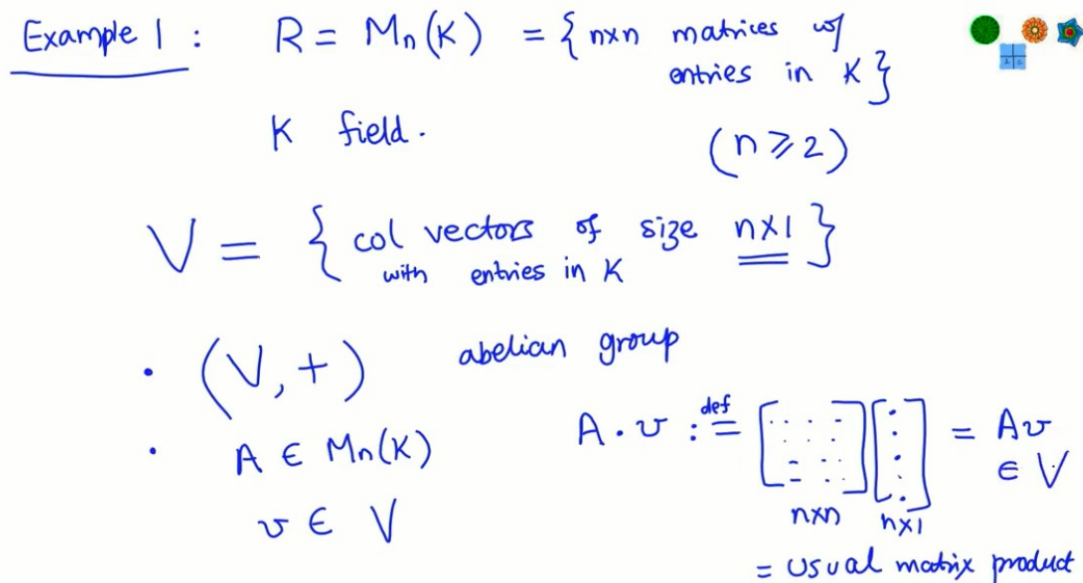 Example 1 : R = Mn(K) = { n×n matrices w/
entries in K }
K field.
(n ⩾ 2)
V = { col vectors of size n×1 }
with entries in K
• (V, +) abelian group
• A ∈ Mn(K)
v ∈ V
A · v :def= [ ] [ ] = Av
∈ V
n×n n×1
= usual matrix product